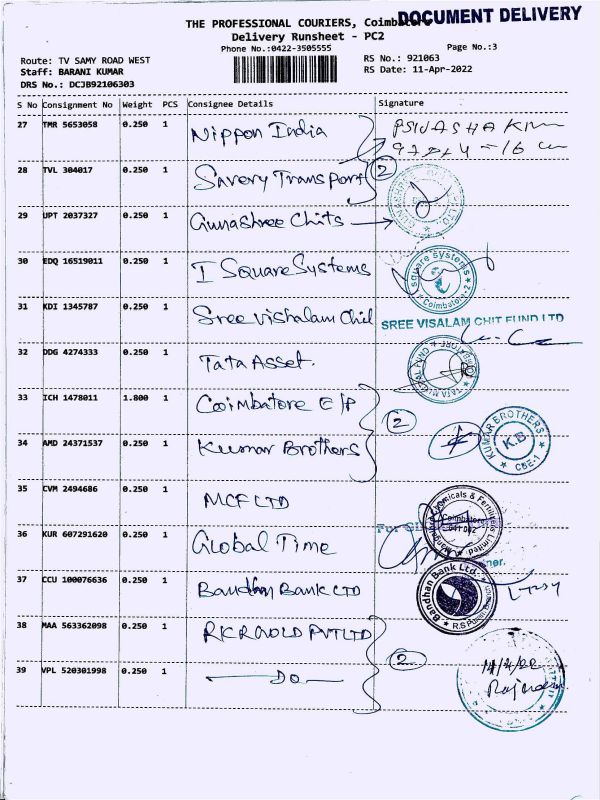 DOCUMENT DELIVERY
THE PROFESSIONAL COURIERS,
Delivery Runsheet - PC2
Phone No.:0422-3505555
Page No.:3
Route: TV SAMY ROAD WEST
RS No.: 921063
Staff: BARANI KUMAR
RS Date: 11-Apr-2022
DRS No.: DCJB92106303
S No Consignment No Weight PCS Consignee Details Signature
27 TMR 5653058 0.250 1 Nippon India
28 TVL 304017 0.250 1 Savery Transport 2
29 UPT 2037327 0.250 1 Gunashree Chits
30 EDQ 16519011 0.250 1 I Square Systems
square systems
Coimbatore-2
31 KDI 1345787 0.250 1 Sree Vishalam Chit
SREE VISALAM CHIT FUND LTD
32 DDG 4274333 0.250 1 Tata Asset.
33 ICH 1478011 1.800 1 Coimbatore E/P 2
34 AMD 24371537 0.250 1 Kumar Brothers
KUMAR BROTHERS
K.B
CBE-1
35 CVM 2494686 0.250 1 MCF LTD
Chemicals & Fertilizers Limited
Coimbatore
36 KUR 607291620 0.250 1 Global Time
37 CCU 100076636 0.250 1 Bandhan Bank LTD
Bandhan Bank Ltd.
38 MAA 563362098 0.250 1
39 VPL 520301998 0.250 1 DO 2